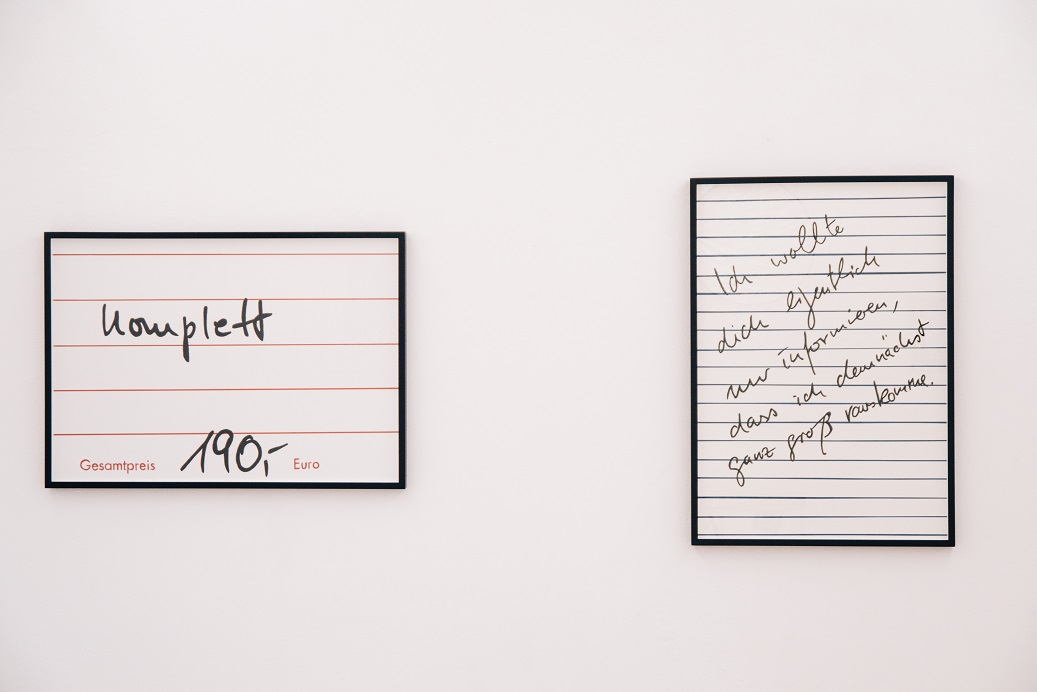 komplett
Gesamtpreis 190,- Euro
Ich wollte
dich eigentlich
nur informieren,
dass ich demnächst
ganz groß rauskomme.